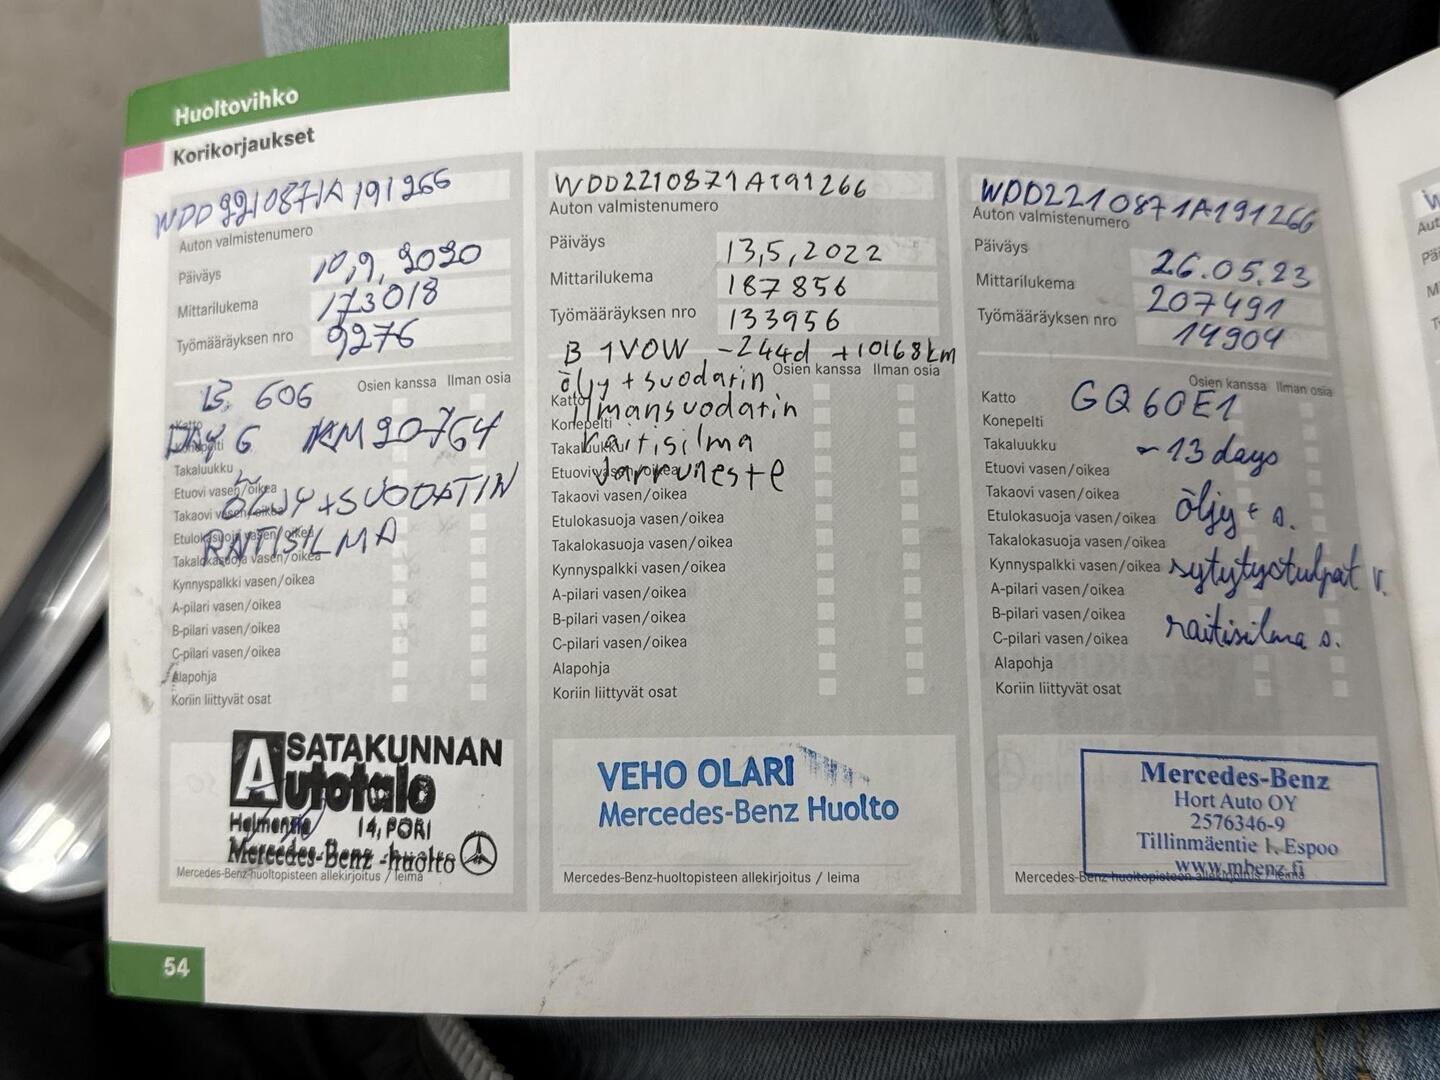 Huoltovihko
Korikorjaukset
WDD2210871A191266
Auton valmistenumero
Päiväys 10,9,2020
Mittarilukema 173018
Työmääräyksen nro 9276
Osien kanssa Ilman osia
B, 606
Katto
DAY 6 KM 20764
Konepelti
Takaluukku
Etuovi vasen/oikea
ÖLJY+SUODATIN
Takaovi vasen/oikea
Etulokasuoja vasen/oikea
RAITISILMA
Takalokasuoja vasen/oikea
Kynnyspalkki vasen/oikea
A-pilari vasen/oikea
B-pilari vasen/oikea
C-pilari vasen/oikea
Alapohja
Koriin liittyvät osat
SATAKUNNAN
Autotalo
14, PORI
Mercedes-Benz -huolto
Mercedes-Benz-huoltopisteen allekirjoitus / leima
WDD2210871A191266
Auton valmistenumero
Päiväys 13,5,2022
Mittarilukema 187856
Työmääräyksen nro 133956
B 1VOW -244d +10168km
Osien kanssa Ilman osia
öljy + suodatin
Katto
ilmansuodatin
Konepelti
raitisilma
Takaluukku
jarruneste
Etuovi vasen/oikea
Takaovi vasen/oikea
Etulokasuoja vasen/oikea
Takalokasuoja vasen/oikea
Kynnyspalkki vasen/oikea
A-pilari vasen/oikea
B-pilari vasen/oikea
C-pilari vasen/oikea
Alapohja
Koriin liittyvät osat
VEHO OLARI
Mercedes-Benz Huolto
Mercedes-Benz-huoltopisteen allekirjoitus / leima
WDD2210871A191266
Auton valmistenumero
Päiväys 26.05.23
Mittarilukema 207491
Työmääräyksen nro 14904
Osien kanssa Ilman osia
Katto
GQ60E1
Konepelti
Takaluukku
-13 days
Etuovi vasen/oikea
Takaovi vasen/oikea
öljy + s.
Etulokasuoja vasen/oikea
Takalokasuoja vasen/oikea
Kynnyspalkki vasen/oikea
sytytystulpat v.
A-pilari vasen/oikea
B-pilari vasen/oikea
raitisilma s.
C-pilari vasen/oikea
Alapohja
Koriin liittyvät osat
Mercedes-Benz
Hort Auto OY
2576346-9
Tillinmäentie 1, Espoo
www.mbenz.fi
Mercedes-Benz-huoltopisteen allekirjoitus / leima
54